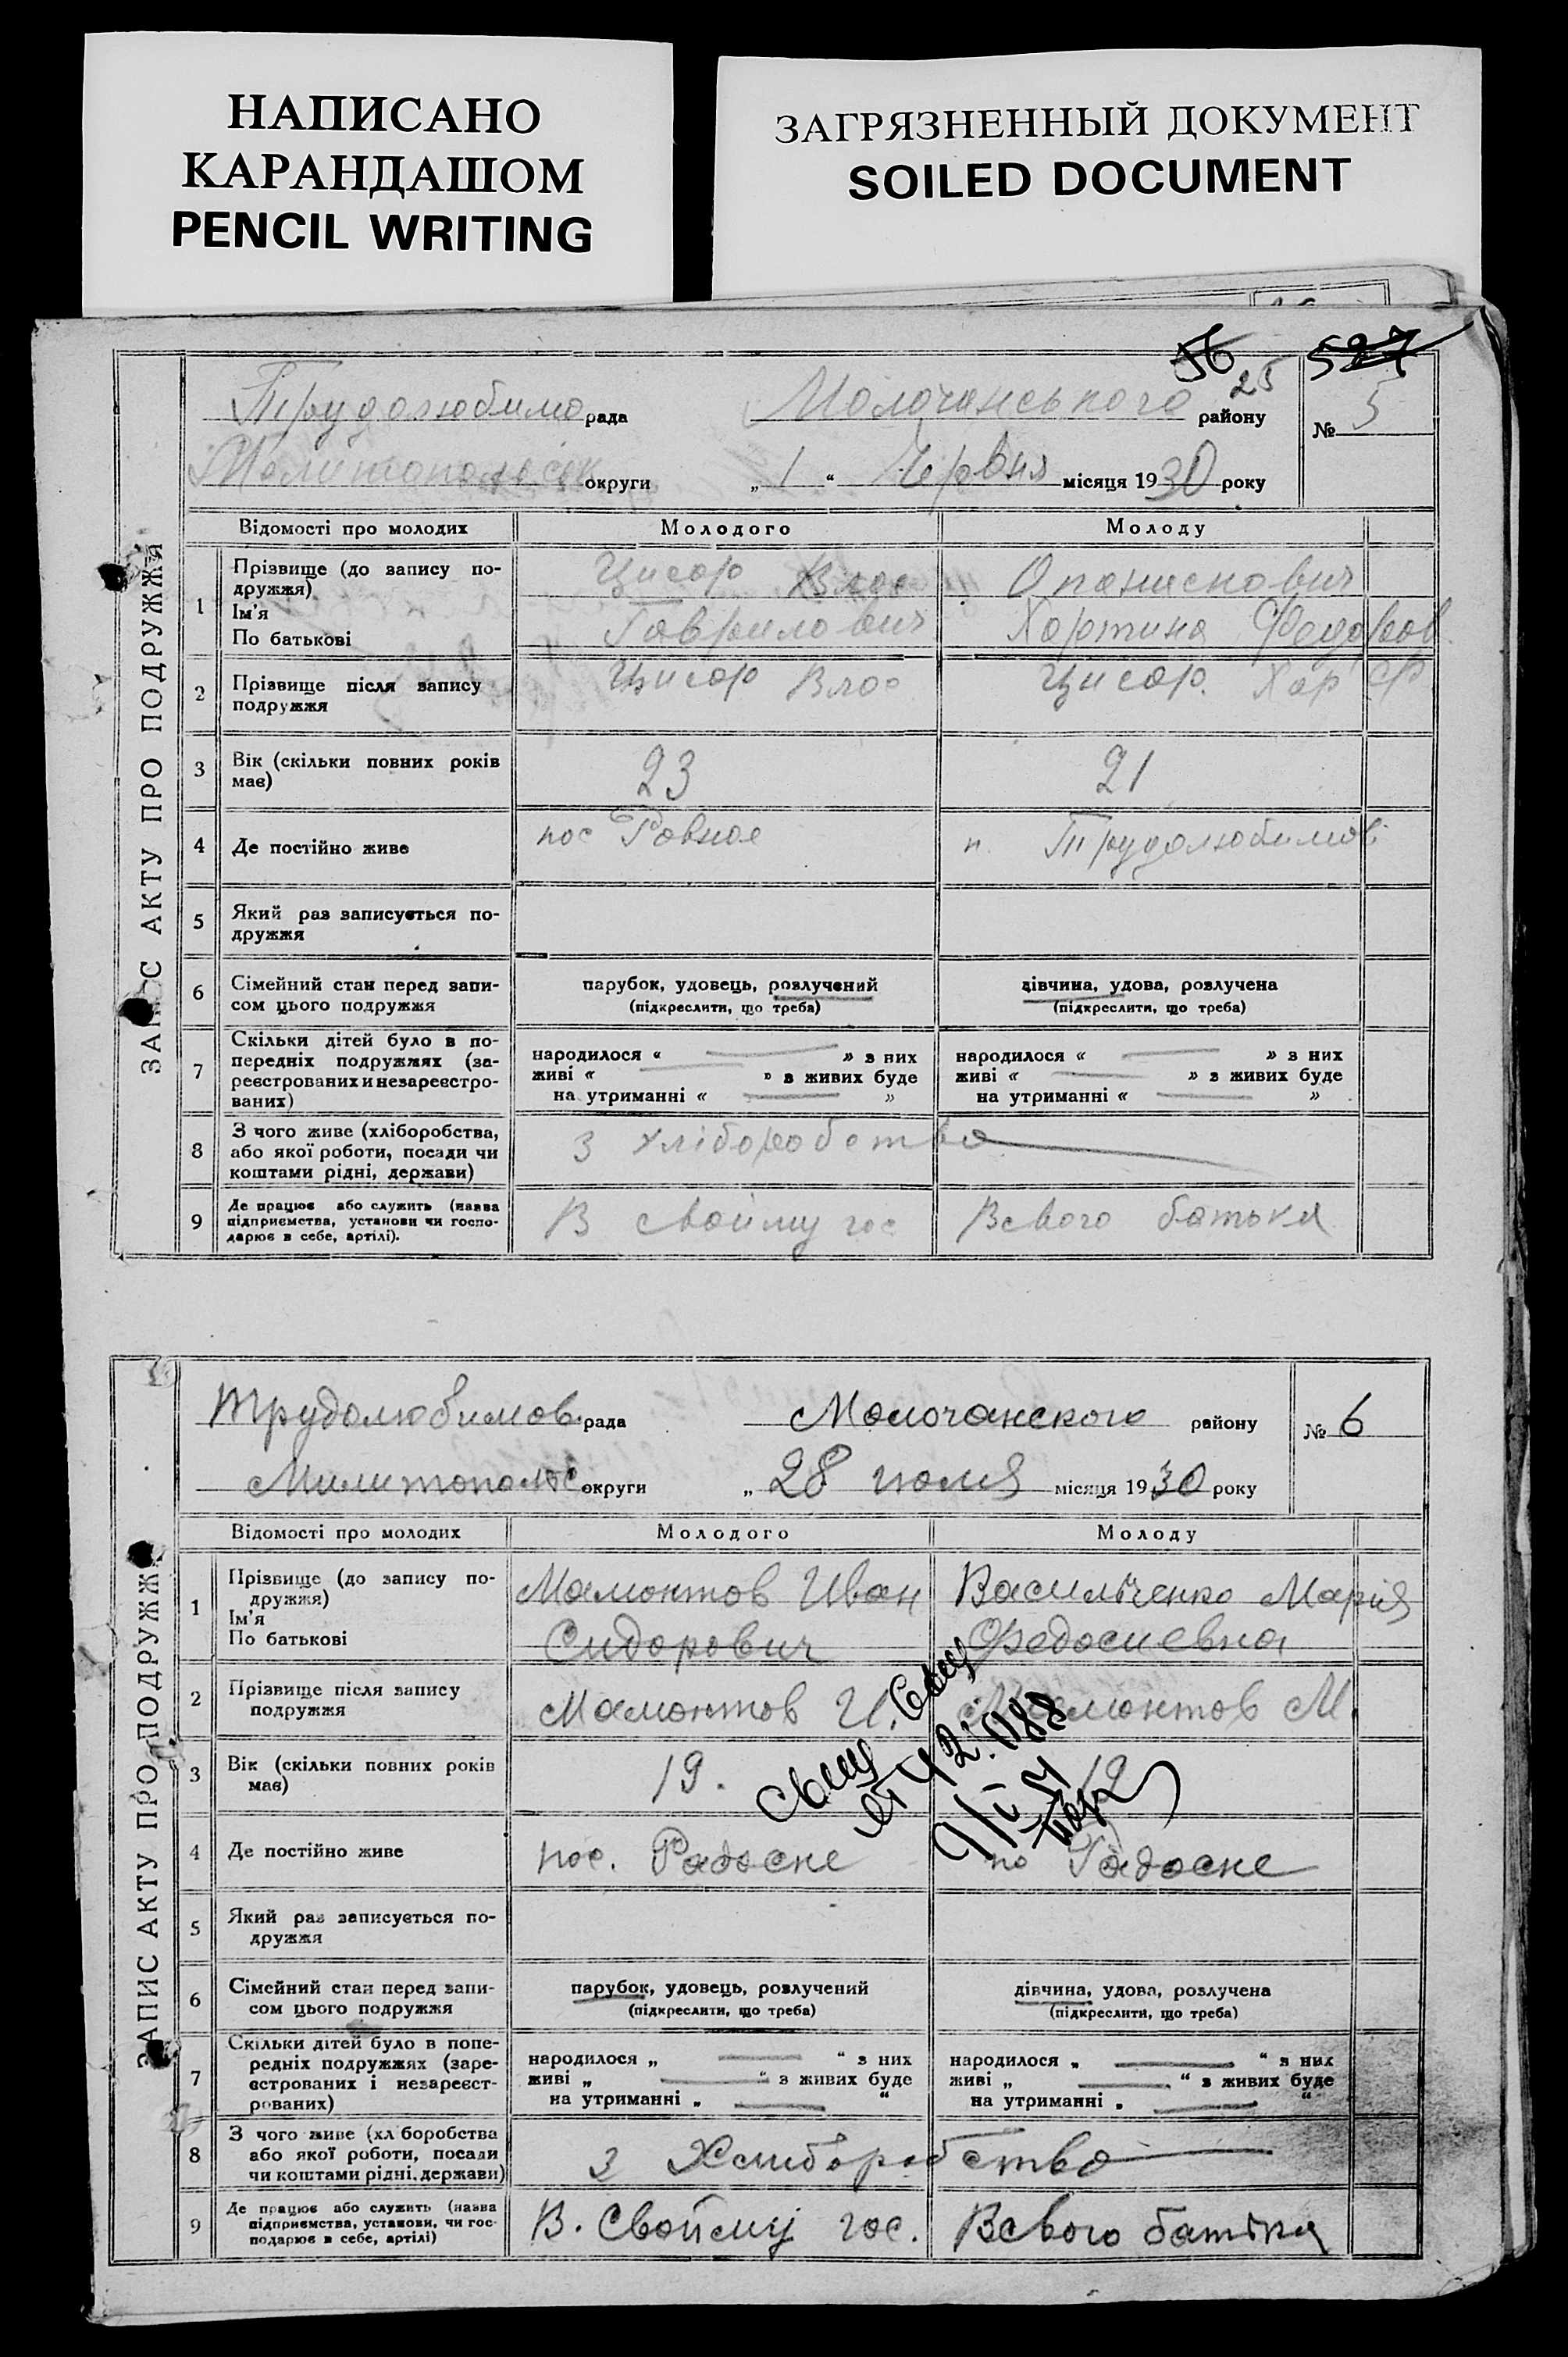 НАПИСАНО
КАРАНДАШОМ
PENCIL WRITING
ЗАГРЯЗНЕННЫЙ ДОКУМЕНТ
SOILED DOCUMENT
56
527
25
Трудолюбимо рада Молочанського району № 5
Мелитопольськ округи „ 1 “ Червня місяця 1930 року
ЗАПИС АКТУ ПРО ПОДРУЖЖЯ
Відомості про молодих Молодого Молоду
1 Прізвище (до запису по-
дружжя)
Ім'я
По батькові
Цисар Влас
Гаврилович
Опанискович
Хартина Федоров
2 Прізвище після запису
подружжя
Цисар Влас
Цисар. Хар Ф
3 Вік (скільки повних років
має)
23
21
4 Де постійно живе
пос Ровное
п. Трудолюбимові
5 Який раз записується по-
дружжя
6 Сімейний стан перед запи-
сом цього подружжя
парубок, удовець, розлучений
(підкреслити, що треба)
дівчина, удова, розлучена
(підкреслити, що треба)
7 Скільки дітей було в по-
передніх подружжях (за-
реєстрованих и незареєстро-
ваних)
народилося « » з них
живі « » з живих буде
на утриманні « »
народилося « » з них
живі « » з живих буде
на утриманні « »
8 З чого живе (хліборобства,
або якої роботи, посади чи
коштами рідні, держави)
З хліборобства
9 Де працює або служить (назва
підприємства, установи чи госпо-
дарює в себе, артілі).
В свойму гос
Всвого батька
Трудолюбимов. рада Молочанского району № 6
Милитополюс округи „ 28 июля місяця 1930 року
ЗАПИС АКТУ ПРО ПОДРУЖЖЯ
Відомості про молодих Молодого Молоду
1 Прізвище (до запису по-
дружжя)
Ім'я
По батькові
Мамонтов Иван
Сидорович
Васильченко Мария
Федосиевна
2 Прізвище після запису
подружжя
Мамонтов И.
Мамонтов М.
3 Вік (скільки повних років
має)
19.
19
4 Де постійно живе
пос. Радосне
по Радосне
5 Який раз записується по-
дружжя
6 Сімейний стан перед запи-
сом цього подружжя
парубок, удовець, розлучений
(підкреслити, що треба)
дівчина, удова, розлучена
(підкреслити, що треба)
7 Скільки дітей було в попе-
редніх подружжях (заре-
єстрованих і незареєст-
рованих)
народилося „ “ з них
живі „ “ з живих буде
на утриманні „ “
народилося „ “ з них
живі „ “ з живих буде
на утриманні „ “
8 З чого живе (хліборобства
або якої роботи, посади
чи коштами рідні, держави)
з Хлиборобство
9 Де працює або служить (назва
підприємства, установи, чи гос-
подарює в себе, артілі)
В. Свойему гос.
Всвого батька